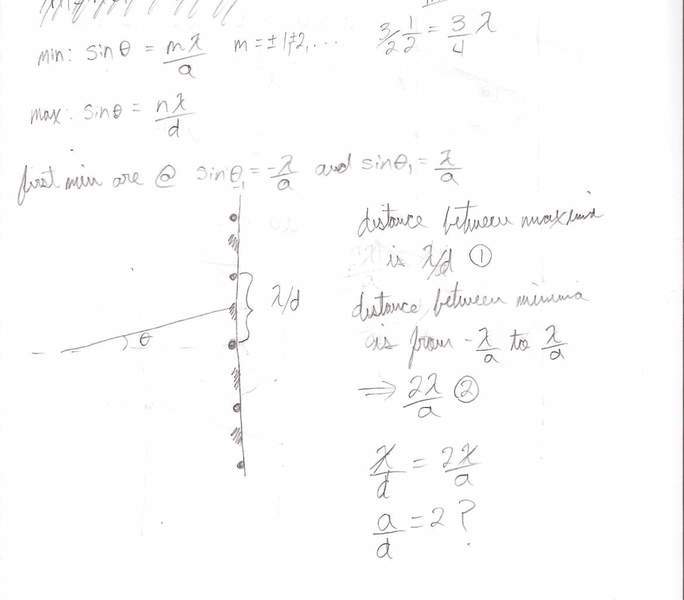 min: sinθ = mλ/a m = ±1, ±2, ... 3/2 1/2 = 3/4 λ
max: sinθ = nλ/d
first min are @ sinθ₁ = -λ/a and sinθ₁ = λ/a
distance between maxima
is λ/d ①
λ/d
distance between minima
is from -λ/a to λ/a
θ
⇒ 2λ/a ②
λ/d = 2λ/a
a/d = 2 ?